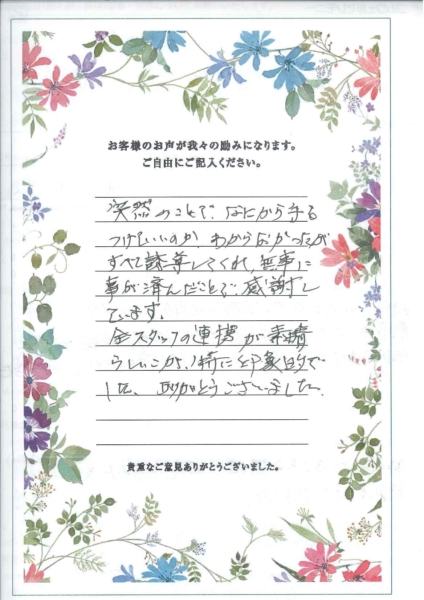 お客様のお声が我々の励みになります。
ご自由にご記入ください。
突然のことで、なにから手を
つけていいのか、わからなかったが
すべて誘導してくれ、無事に
事が済んだことで感謝し
ています。
全スタッフの連携が素晴
らしいことが、特に印象的で
した、ありがとうございました。
貴重なご意見ありがとうございました。